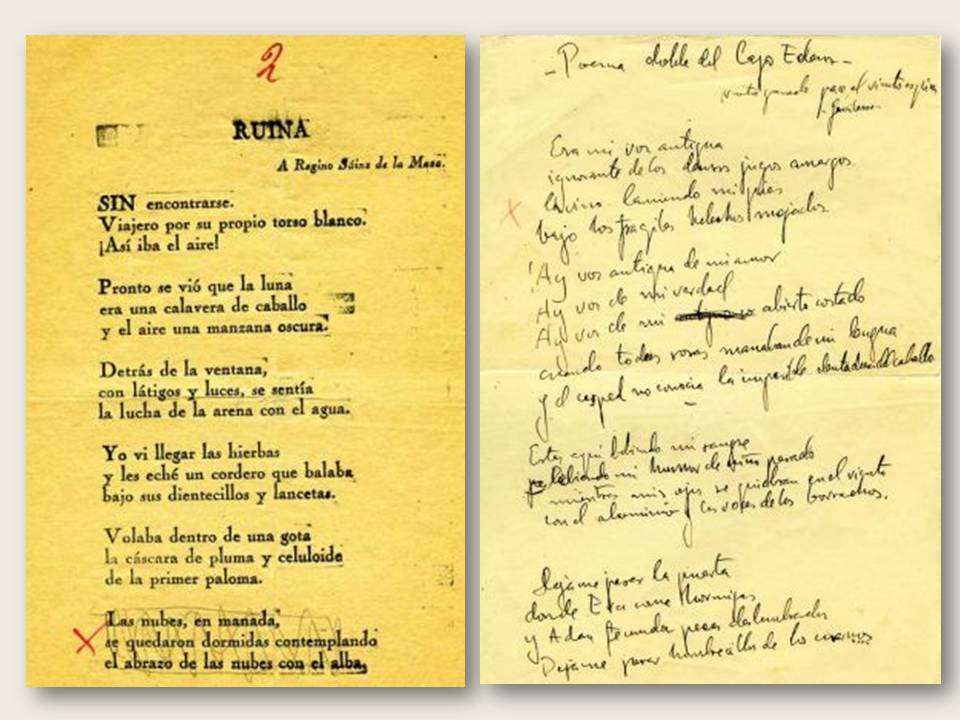 2
RUINA
A Regino Sáinz de la Maza.
SIN encontrarse.
Viajero por su propio torso blanco.
¡Así iba el aire!
Pronto se vió que la luna
era una calavera de caballo
y el aire una manzana oscura.
Detrás de la ventana,
con látigos y luces, se sentía
la lucha de la arena con el agua.
Yo vi llegar las hierbas
y les eché un cordero que balaba
bajo sus dientecillos y lancetas.
Volaba dentro de una gota
la cáscara de pluma y celuloide
de la primer paloma.
Las nubes, en manada,
se quedaron dormidas contemplando
el abrazo de las nubes con el alba,
- Poema doble del Lago Edem -
Era mi voz antigua
ignorante de los densos jugos amargos.
lamiendo mis pies
bajo los fragiles helechos mojados.
¡Ay voz antigua de mi amor
Ay voz de mi verdad
Ay voz de mi abierto costado
cuando todas rosas manaban de mi lengua
y el cesped no conocia la impasible dentadura del caballo
Estas aqui bebiendo mi sangre
bebiendo mi humor de niño pasado
mientras mis ojos se quiebran en el viento
con el aluminio y las voces de los borrachos.
Dejame pasar la puerta
donde Eva come hormigas
y Adan fecunda peces deslumbrados
Dejame pasar hombrecillo de los cuernos